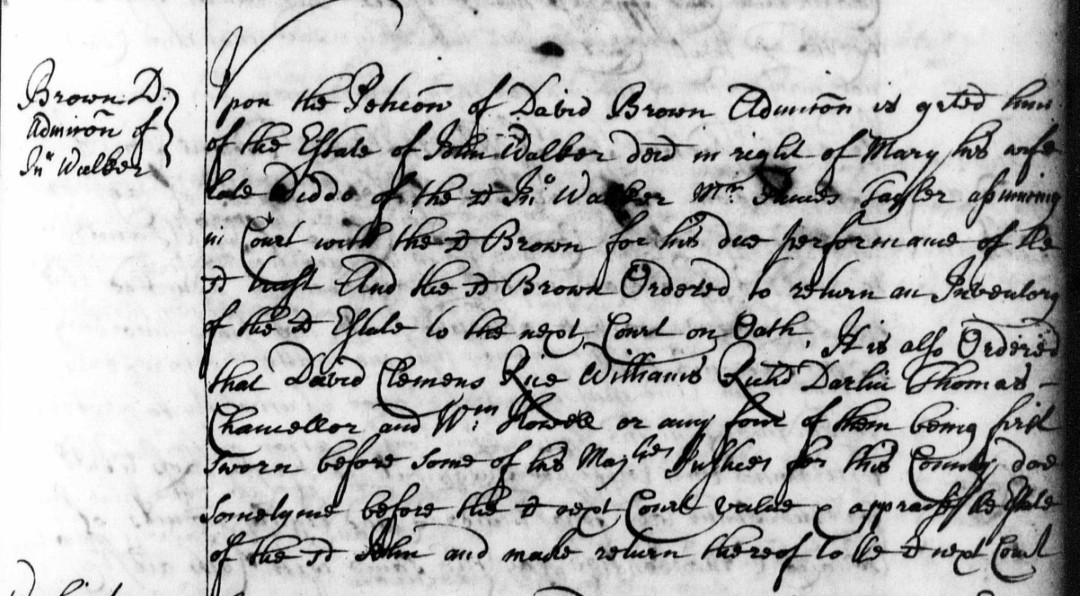 Brown D:
Admicõn of
Jnº Walker
Upon the Peticõn of David Brown Admicõn is grted him
of the Estate of John Walker decd in right of Mary his wife
late Widdo of the sd Jnº Walker Mr. James Tayler assuming
in Court with the sd Brown for his due performance of the
sd trust And the sd Brown Ordered to return an Inventory
of the sd Estate to the next Court on Oath, It is also Ordered
that David Clemens Rice Williams Richd Darlin Thomas -
Chancellor and Wm: Howell or any four of them being first
sworn before some of his Majties Justices for this County doe
sometyme before the sd next Court value & appraise the Estate
of the sd John and make return thereof to the sd next Court